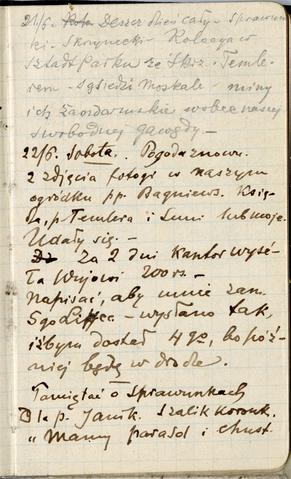 21/6. Deszcz dzień cały. Sprawun
ki. Skrzynecki. Kolacya w
Stadtparku ze Skrz. i Temle-
rem. Sąsiedzi Moskale - miny
ich żandarmskie wobec naszej
swobodnej gawędy. -
22/6. Sobota. Pogoda znowu.
2 zdjęcia fotogr w naszym
ogródku pp. Bagniews. Księ-
dza, p Temlera i Luni lub moje.
Udały się. -
Za 2 dni Kantor wyśé-
ła Wujowi 200 rs. -
Napisać, aby mnie zam.
5go Lipca - wysłano tak,
iżbym dostał 4go, bo póź-
niej będę w drodze.
Pamiętać o Sprawunkach
Dla p. Janik. Szalik koronk.
" Mamy parasol i chust